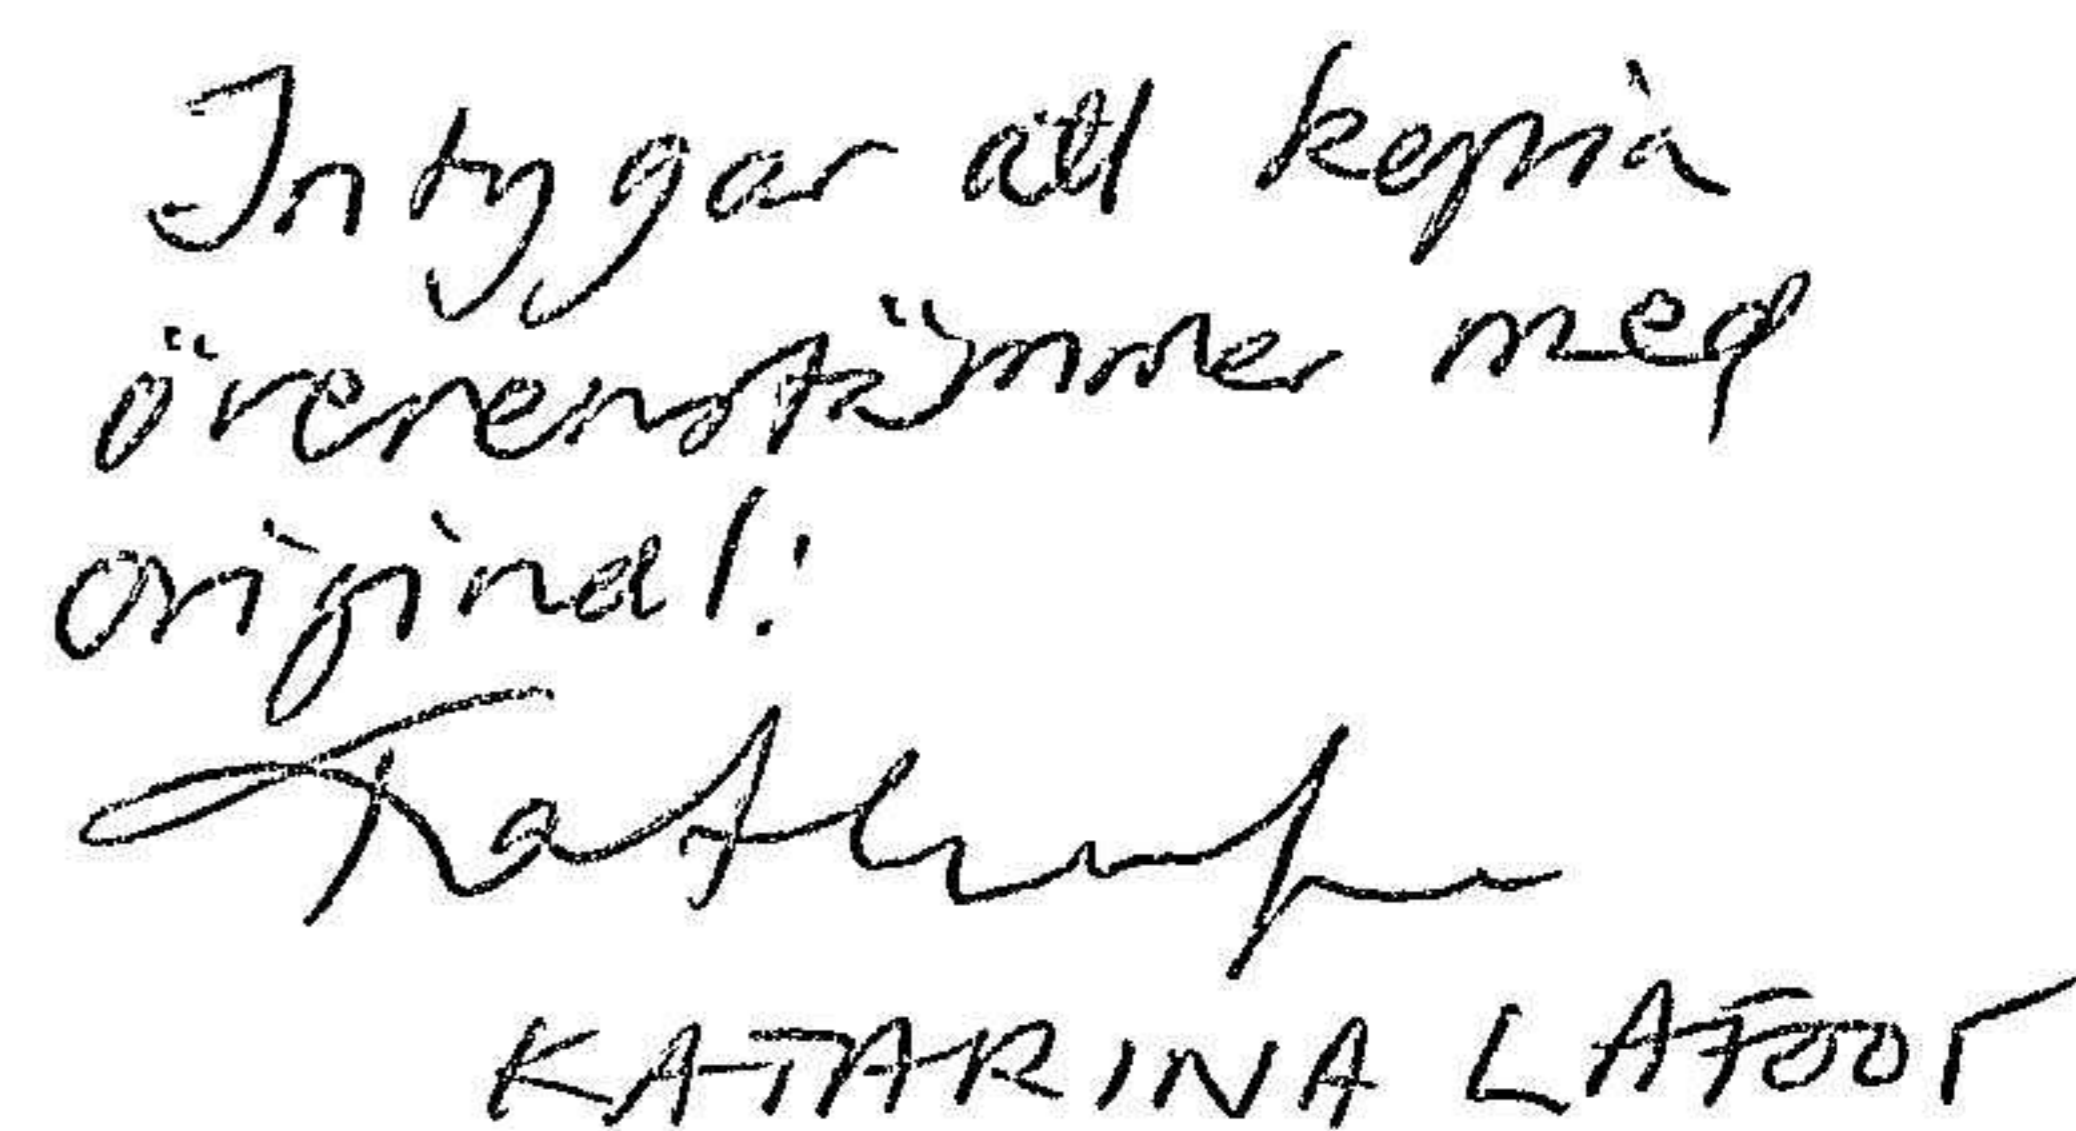 Intygar att kopia
överenstämmer med
original:
KATARINA LAFOOT